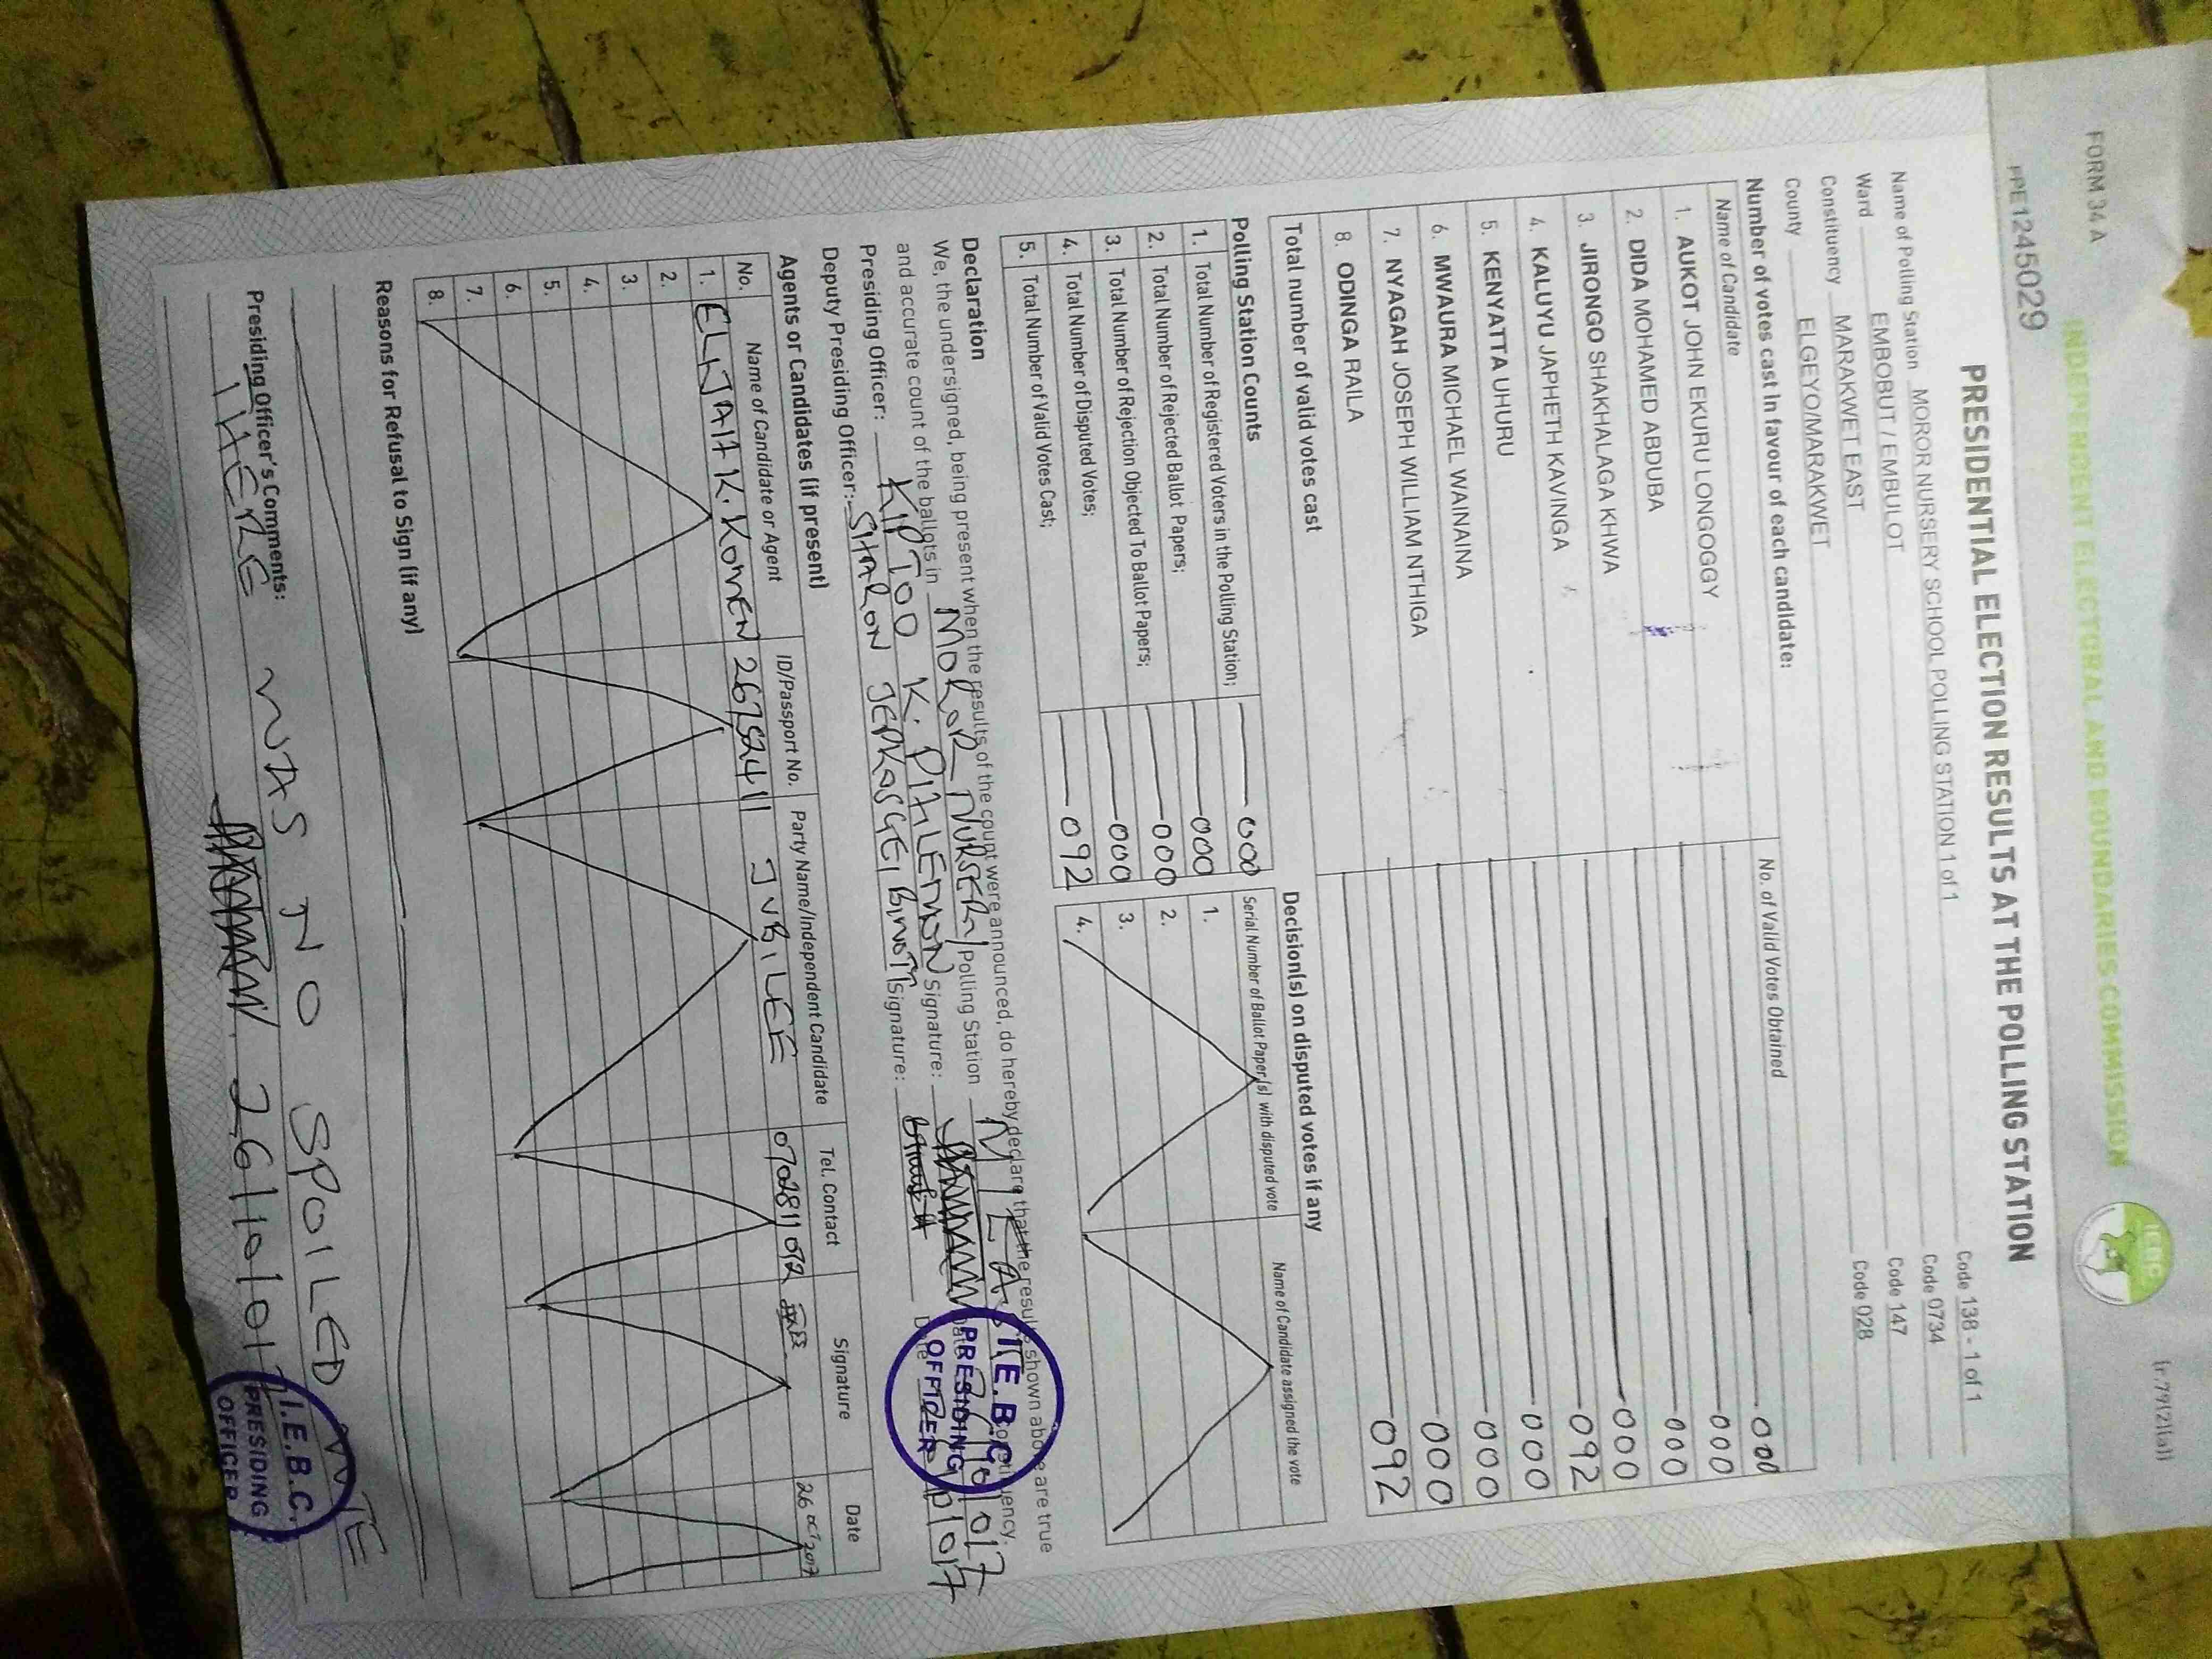 FORM 34 A
(r.79(2)(a))
INDEPENDENT ELECTORAL AND BOUNDARIES COMMISSION
IEBC
PRESIDENTIAL ELECTION RESULTS AT THE POLLING STATION
Name of Polling Station MOROR NURSERY SCHOOL POLLING STATION 1 of 1 Code 138 - 1 of 1
Ward EMBOBUT / EMBULOT Code 0734
Constituency MARAKWET EAST Code 147
County ELGEYO/MARAKWET Code 028
Number of votes cast in favour of each candidate:
Name of Candidate No. of Valid Votes Obtained
1. AUKOT JOHN EKURU LONGOGGY 000
2. DIDA MOHAMED ABDUBA 000
3. JIRONGO SHAKHALAGA KHWA 000
4. KALUYU JAPHETH KAVINGA 000
5. KENYATTA UHURU 092
6. MWAURA MICHAEL WAINAINA 000
7. NYAGAH JOSEPH WILLIAM NTHIGA 000
8. ODINGA RAILA 000
Total number of valid votes cast 092
Polling Station Counts
1. Total Number of Registered Voters in the Polling Station; 000
2. Total Number of Rejected Ballot Papers; 000
3. Total Number of Rejection Objected To Ballot Papers; 000
4. Total Number of Disputed Votes; 000
5. Total Number of Valid Votes Cast; 092
Decision(s) on disputed votes if any
Serial Number of Ballot Paper(s) with disputed vote Name of Candidate assigned the vote
1.
2.
3.
4.
Declaration
We, the undersigned, being present when the results of the count were announced, do hereby declare that the results shown above are true
and accurate count of the ballots in MOROR NURSERY Polling Station Constituency.
Presiding Officer: KIPTOO K. PHILEMON Signature:
Deputy Presiding Officer: SHARON JEPKOSGEI Signature: Date
I.E.B.C. PRESIDING OFFICER
Agents or Candidates (if present)
No. Name of Candidate or Agent ID/Passport No. Party Name/Independent Candidate Tel. Contact Signature Date
1. ELIJAH K. KOMEN 26752411 JUBILEE 0702811072 26 OCT 2017
2.
3.
4.
5.
6.
7.
8.
Reasons for Refusal to Sign (if any)
Presiding Officer's Comments:
THERE WAS NO SPOILED
I.E.B.C. PRESIDING OFFICER